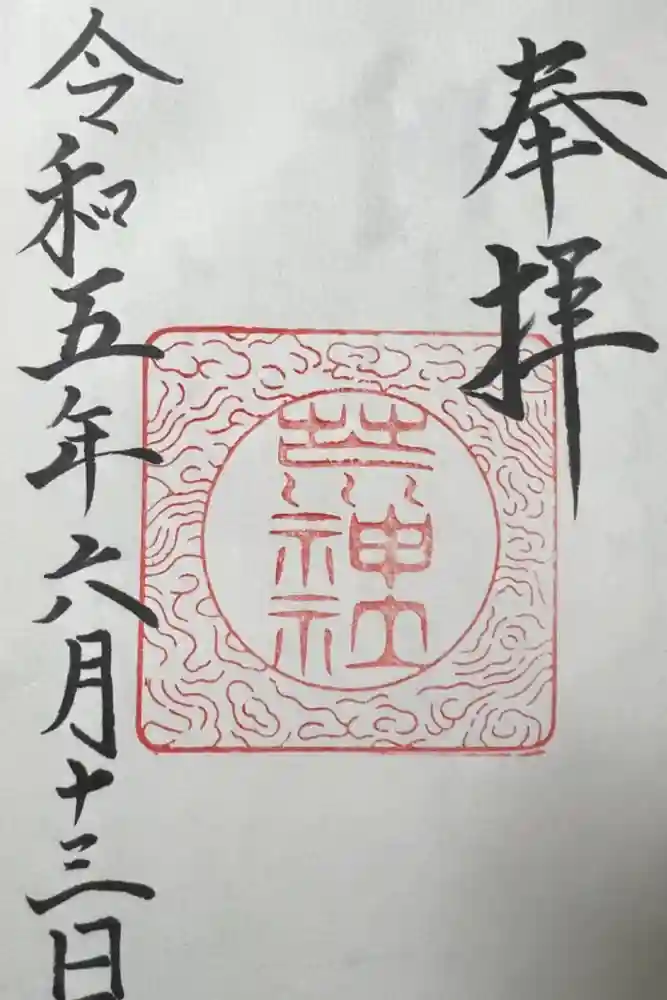 奉拝
荒神社
令和五年六月十三日